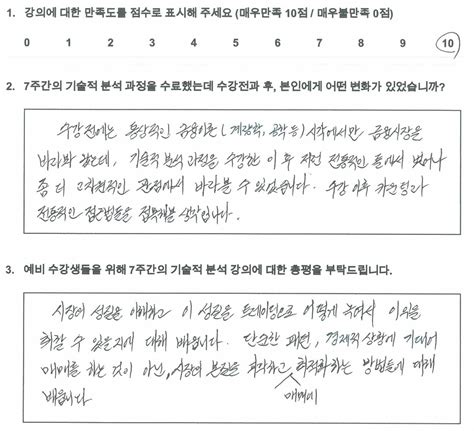 1. 강의에 대한 만족도를 점수로 표시해 주세요 (매우만족 10점 / 매우불만족 0점)
0 1 2 3 4 5 6 7 8 9 10
2. 7주간의 기술적 분석 과정을 수료했는데 수강전과 후, 본인에게 어떤 변화가 있었습니까?
수강전에는 통상적인 금융이론 ( 공학 등) 시각에서만 금융시장을
바라봐 왔는데, 기술적 분석 과정을 수강한 이후 저런 전통적인 틀에서 벗어나
좀 더 고차원적인 관점에서 바라볼 수 있었습니다. 수강 이후
전통적인 접근법들을 접목해볼 생각입니다.
3. 예비 수강생들을 위해 7주간의 기술적 분석 강의에 대한 총평을 부탁드립니다.
시장의 성질을 이해하고 이 성질을 트레이딩으로 어떻게 녹여서 이익을
취할 수 있을지에 대해 배웁니다. 단순한 패턴, 경제적 상황에 기대어
매매를 하는 것이 아닌, 시장의 본질을 파악하고 최적화하는 방법들에 대해
배웁니다 매매에